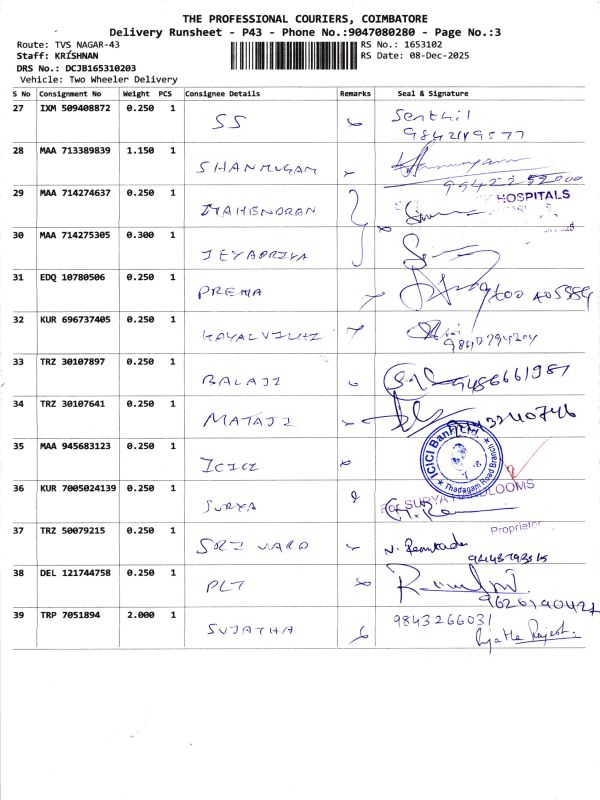 THE PROFESSIONAL COURIERS, COIMBATORE
Delivery Runsheet - P43 - Phone No.:9047080280 - Page No.:3
Route: TVS NAGAR-43
Staff: KRISHNAN
DRS No.: DCJB165310203
Vehicle: Two Wheeler Delivery
RS No.: 1653102
RS Date: 08-Dec-2025
S No Consignment No Weight PCS Consignee Details Remarks Seal & Signature
27 IXM 509408872 0.250 1 SS Senthil
9842149577
28 MAA 713389839 1.150 1 SHANMUGAM
9942252000
29 MAA 714274637 0.250 1 MAHENDRAN HOSPITALS
30 MAA 714275305 0.300 1 JEYAPRIYA
31 EDQ 10780506 0.250 1 PREMA 9600 405559
32 KUR 696737405 0.250 1 KAYALVILHI
9840794204
33 TRZ 30107897 0.250 1 BALAJI 9486661987
34 TRZ 30107641 0.250 1 MATAJI
35 MAA 945683123 0.250 1 ICICI ICICI Bank Ltd
Thadagam Road Branch
36 KUR 7005024139 0.250 1 SURYA For SURYA HANDLOOMS
Proprietor
37 TRZ 50079215 0.250 1 SRI VARD
38 DEL 121744758 0.250 1 PLT
39 TRP 7051894 2.000 1 SUJATHA 9843266031
Sujatha Rajesh.